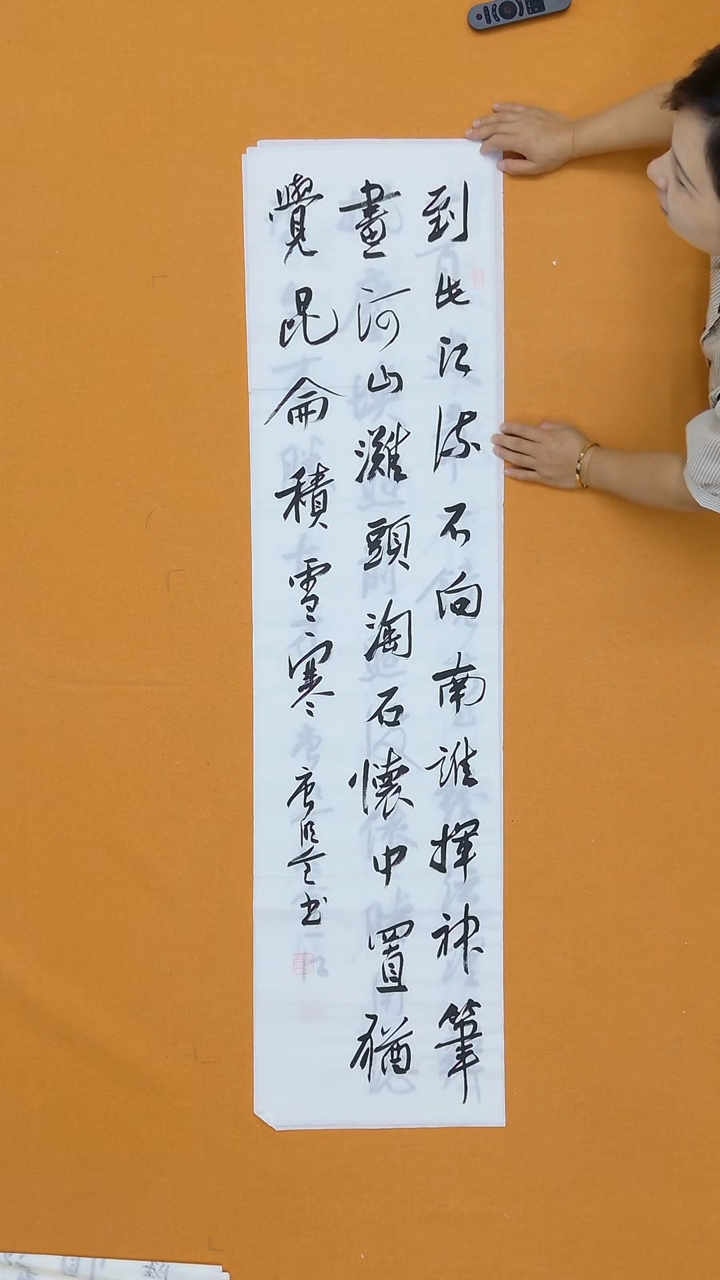 到此江流不向南誰揮神筆
畫河山灘頭淘石懷中置猶
覺昆侖積雪寒 唐 書